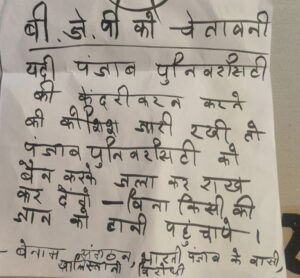 बी. जे. पी को चेतावनी
यदी पंजाब युनिवरसिटी
की केंदरीकरन करने
की कोशिश जारी रखी तो
पंजाब युनिवरसिटी को
जला कर राख
कर देंगे । बिना किसी की
जान को हानी पहुंचाऐ ।
- बेनाम संगठन, भारती पंजाब के वासी,
खालिस्तानी विरोधी